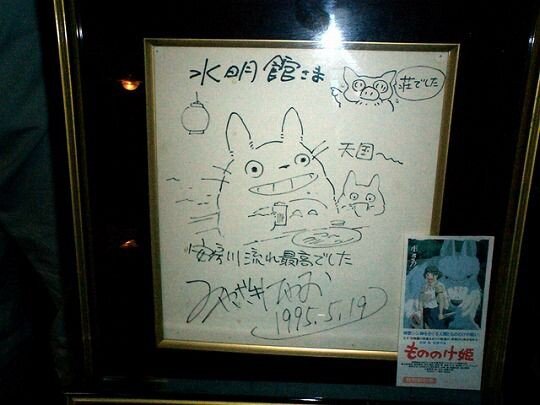 水明館さま
荘でした
天国〜
安房川流れ最高でした
みやざきはやお
1995-5.19
もののけ姫